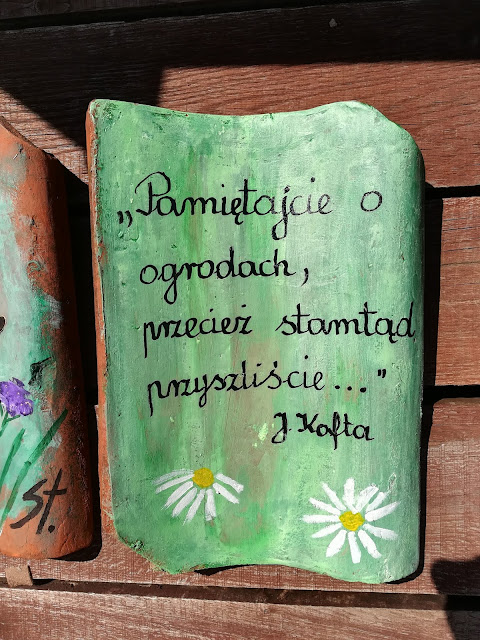 „Pamiętajcie o
ogrodach,
przecież stamtąd
przyszliście..."
J. Kofta
st.